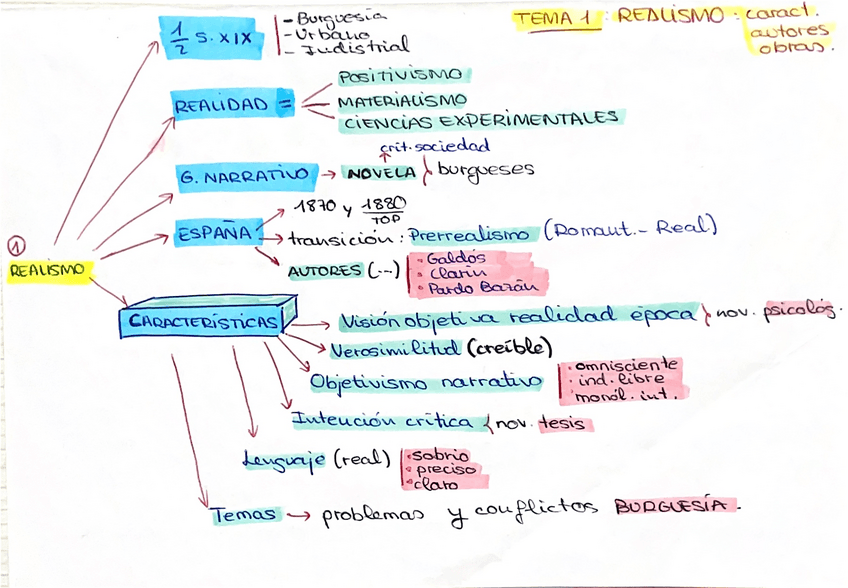 TEMA 1: REALISMO: caract.
autores
obras.
1/2 s. XIX
- Burguesía
- Urbano
- Industrial
REALIDAD =
POSITIVISMO
MATERIALISMO
CIENCIAS EXPERIMENTALES
crít. sociedad
G. NARRATIVO → NOVELA } burgueses
1870 y 1880
TOP
ESPAÑA
transición: Prerrealismo (Romant. - Real)
AUTORES (...)
· Galdós
· Clarín
· Pardo Bazán
①
REALISMO
CARACTERÍSTICAS
Visión objetiva realidad época } nov. psicológ.
Verosimilitud (creíble)
Objetivismo narrativo
· omnisciente
· ind. libre
· monól. int.
Intención crítica { nov. tesis
Lenguaje (real)
· sobrio
· preciso
· claro
Temas → problemas y conflictos BURGUESÍA.